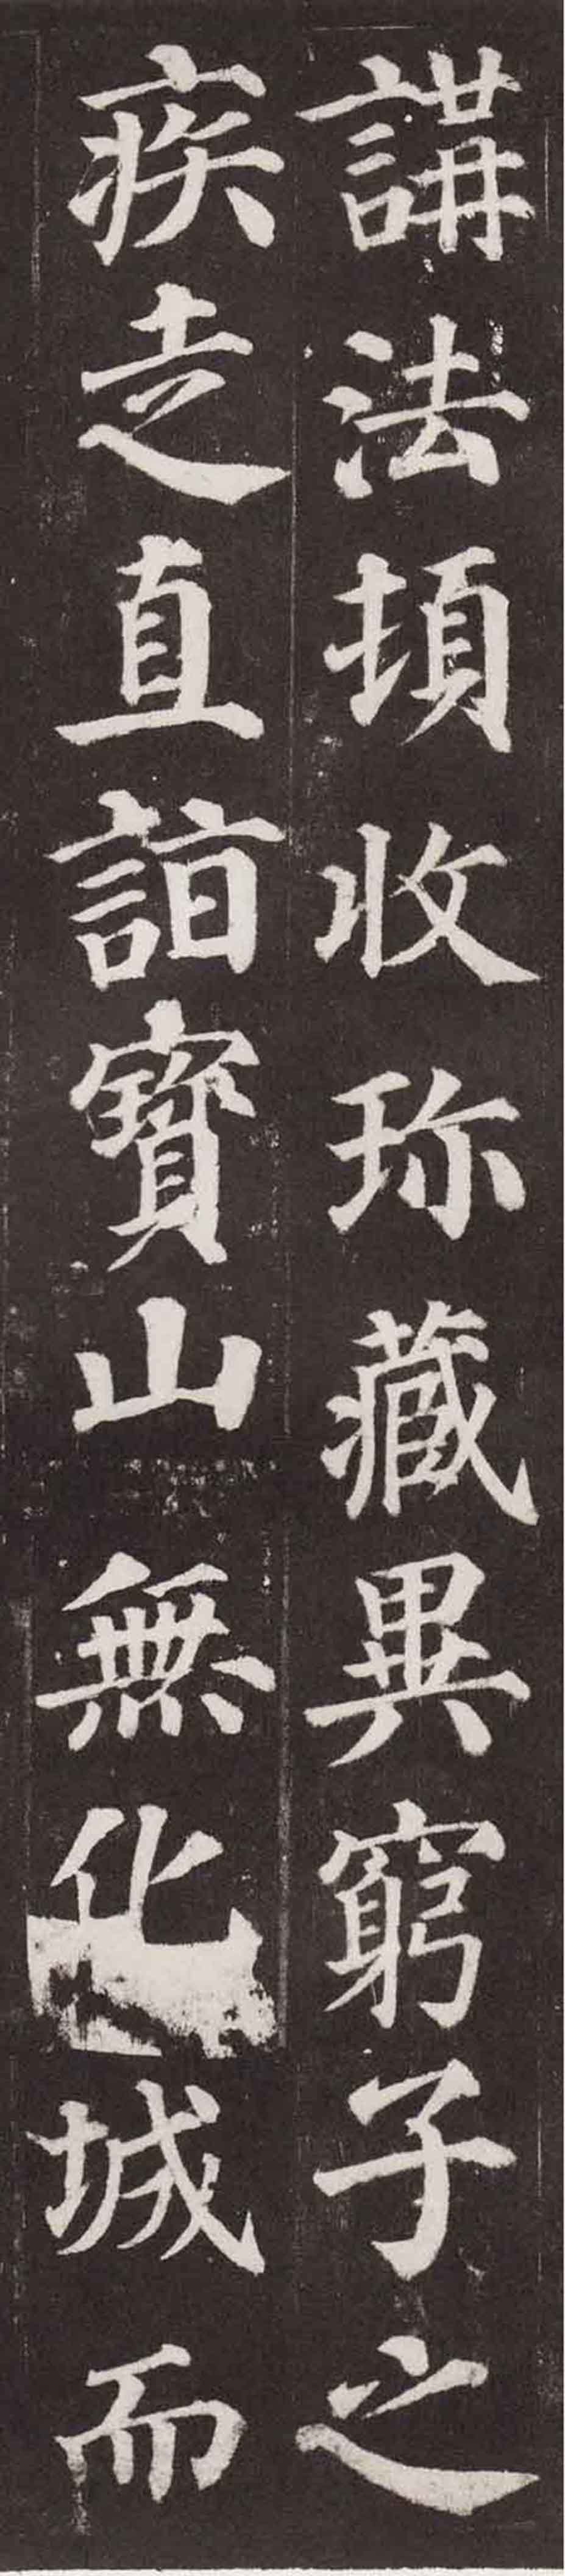 講法頓收珎藏異窮子之
疾走直詣寶山無化城而